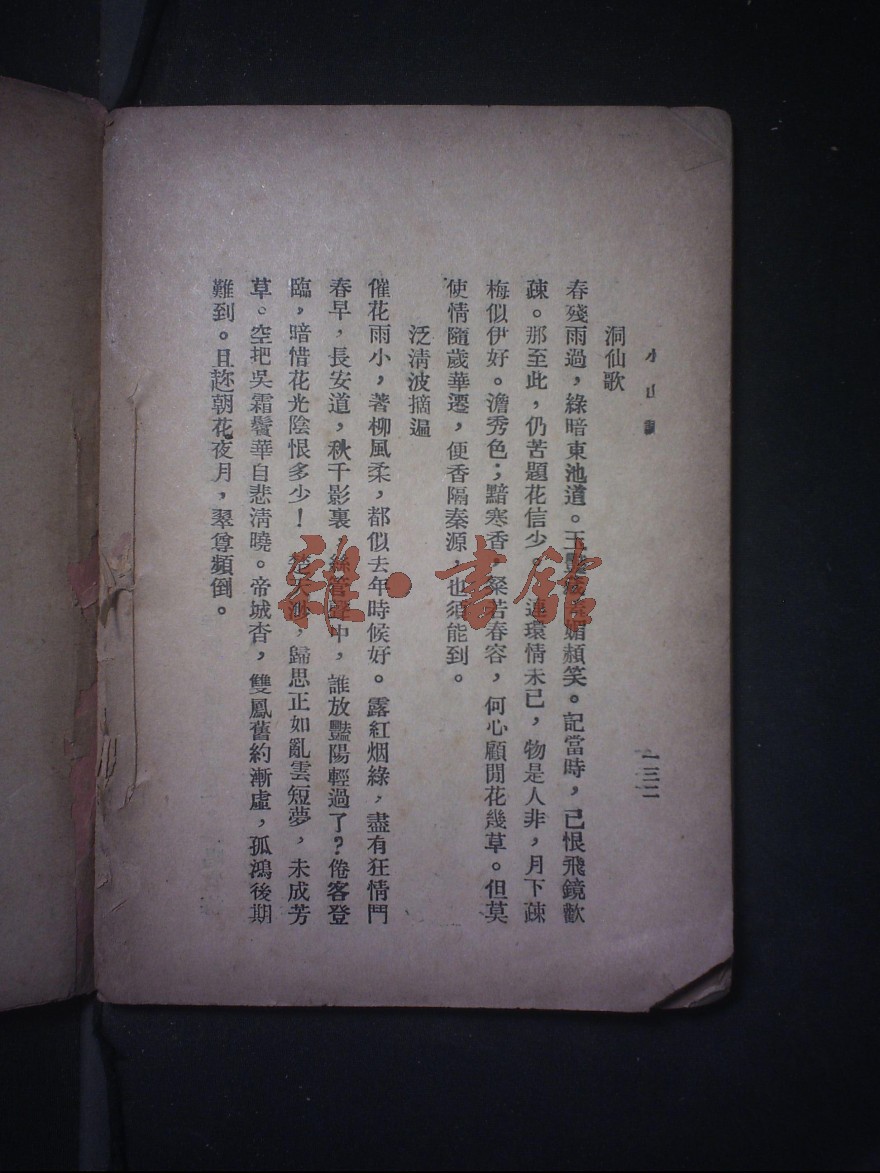 小山詞
一三二
洞仙歌
春殘雨過，綠暗東池道。玉豔藏羞媚赬笑。記當時，已恨飛鏡歡
疎。那至此，仍苦題花信少。 連環情未已，物是人非，月下疎
梅似伊好。澹秀色；黯寒香，粲若春容，何心顧閒花幾草。但莫
使情隨歲華遷，便香隔秦源，也須能到。
泛淸波摘遍
催花雨小，著柳風柔，都似去年時候好。露紅烟綠，盡有狂情鬥
春早，長安道，秋千影裏 絲管聲中，誰放豔陽輕過了？倦客登
臨，暗惜花光陰恨多少！ 楚天渺，歸思正如亂雲短夢，未成芳
草。空把吳霜鬢華自悲淸曉。帝城杳，雙鳳舊約漸虛，孤鴻後期
難到。且趂朝花夜月，翠尊頻倒。
雜·書館